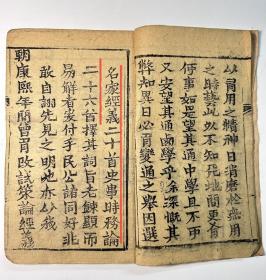 以有用之精神日消磨於無用
之時藝此外不知天地間更有
何事如是望其通中學且不可
又安望其通西學乎余深慨其
弊知異日必有變通之舉因選
名家經義二十首史事時務論
二十六首擇其詞旨老鍊顯而
易解者爰付手民公諸同好非
敢自詡先見之明也亦以我
朝康熙年間曾有改試策論經義